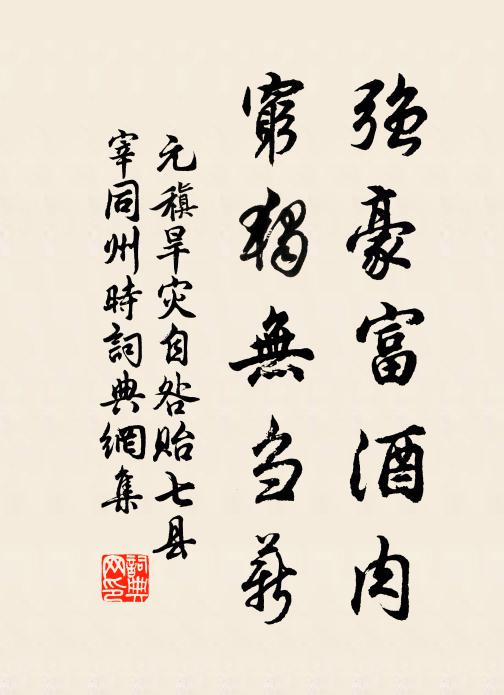 強豪富酒肉
窮獨無刍薪
元稹旱灾自咎贻七县
宰同州時詞典網集
詞典网印